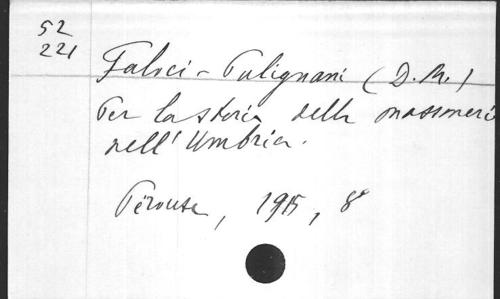 52
221
Faloci-Pulignani (D. M.)
Per la storia della massoneri
nell' Umbria.
Pérouse, 1915, 8°